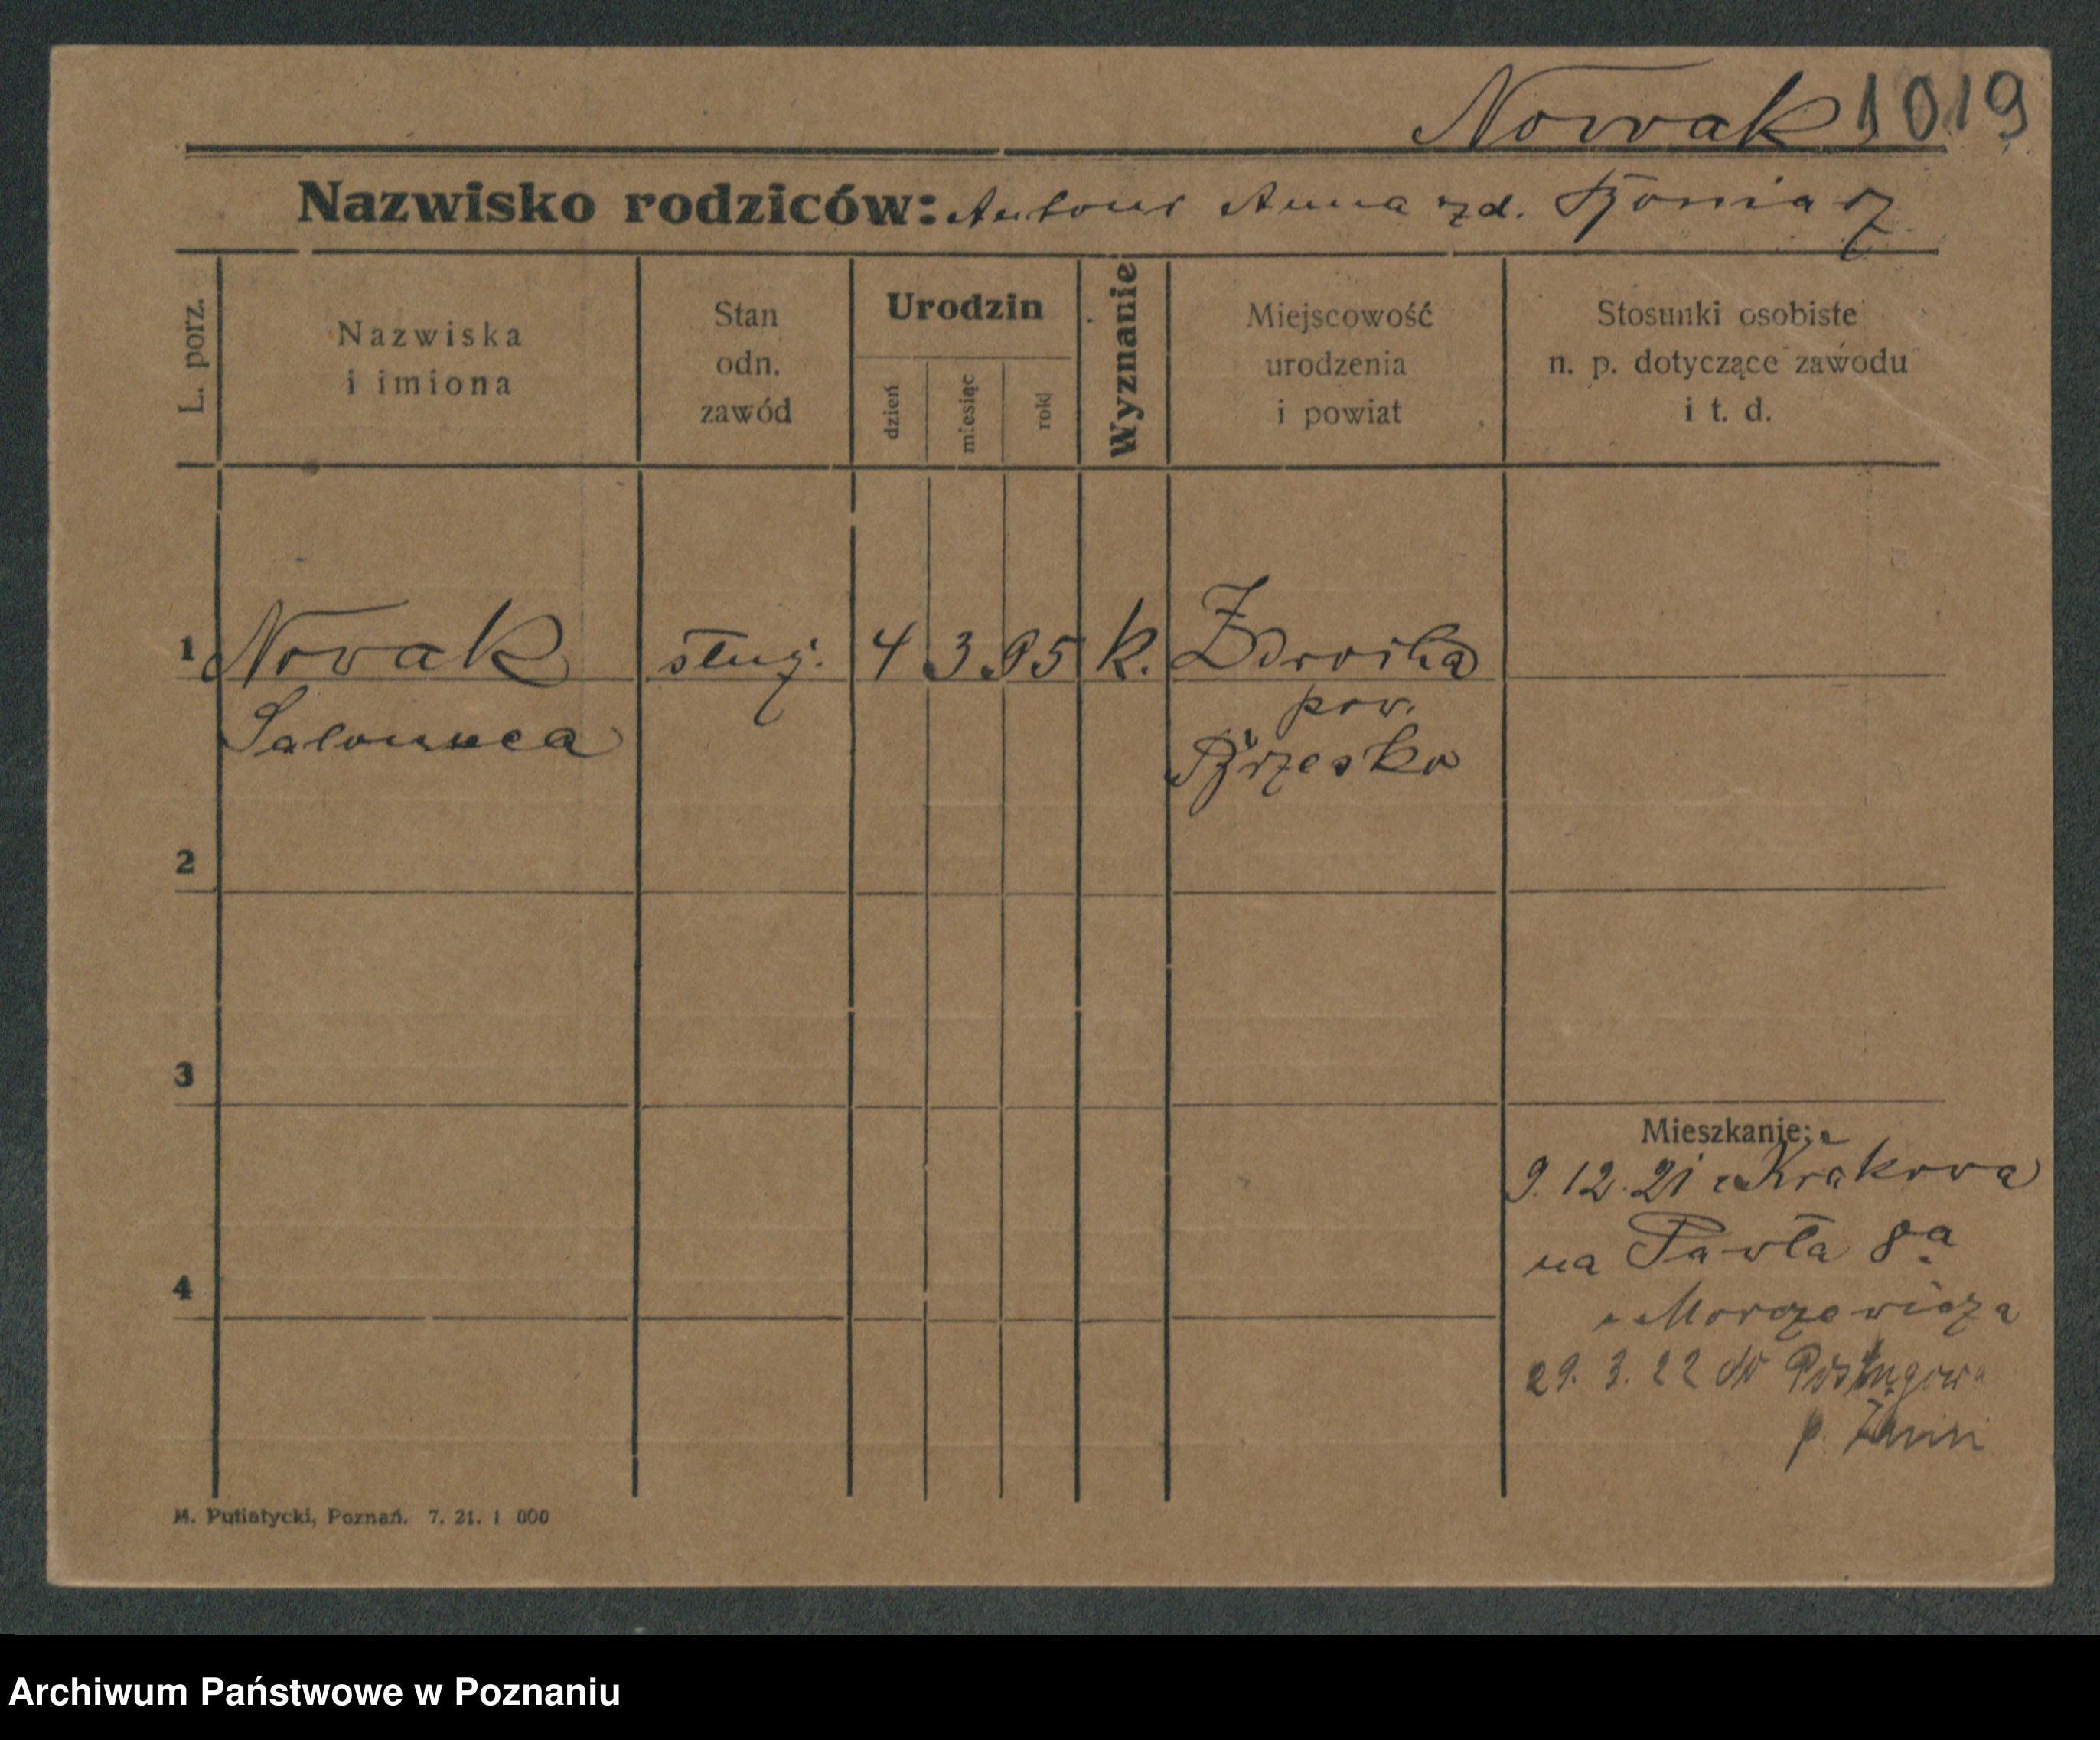 Nowak 1019
Nazwisko rodziców: Antoni Anna zd. Boniaz
L. porz.
Nazwiska
i imiona
Stan
odn.
zawód
Urodzin
dzień
miesiąc
rok
Wyznanie
Miejscowość
urodzenia
i powiat
Stosunki osobiste
n. p. dotyczące zawodu
i t. d.
1 Nowak służ. 4 3. 95 k.
Salomea
pow.
Brzesko
2
3
Mieszkanie:
9. 12. 21 z Krakowa
na Pawła 8a
29. 3. 22 do
4
M. Putiatycki, Poznań. 7. 21. 1 000
Archiwum Państwowe w Poznaniu